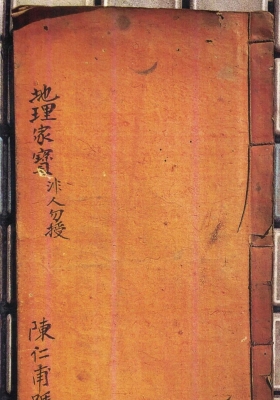 地理家寶
非人勿授
陳仁甫